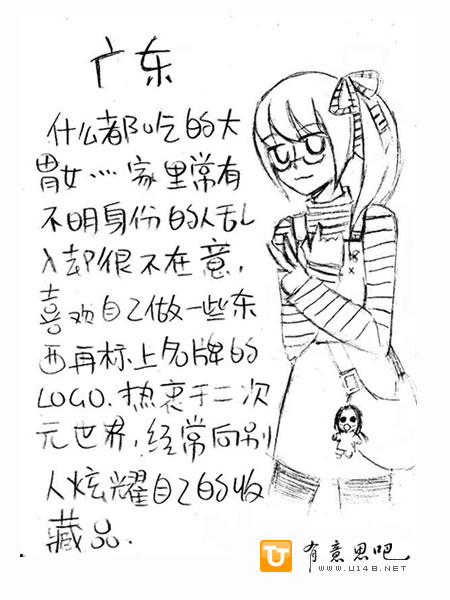 广东
什么都吃的大
胃女….家里常有
不明身份的人乱
入却很不在意,
喜欢自己做一些东
西再标上名牌的
LOGO.热衷于二次
元世界,经常向别
人炫耀自己的收
藏品.
有意思吧
WWW.U148.NET